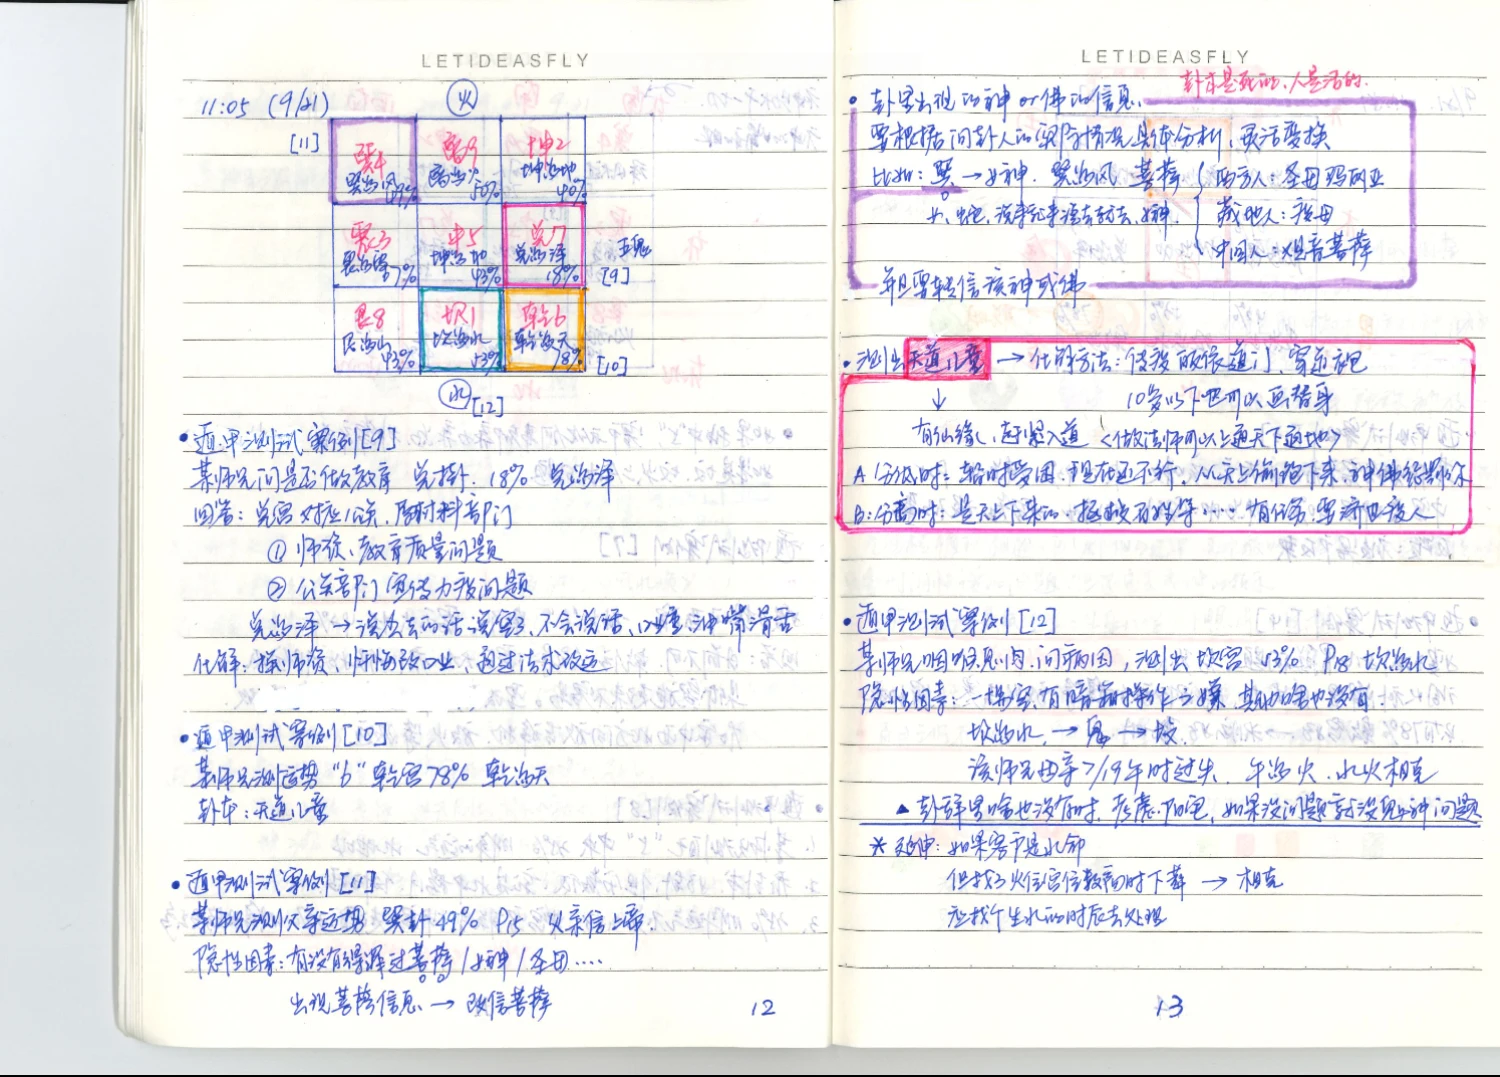 LETIDEASFLY
11:05 (9/21)
火
[11]
巽4
巽为风
49%
离9
离为火
50%
坤2
坤为地
40%
震3
震为雷
7%
中5
坤为地
43%
兑7
兑为泽
18%
[9]
艮8
艮为山
93%
坎1
坎为水
53%
乾6
乾为天
78%
[10]
水
[12]
• 遁甲测试案例[9]
某师兄问是否做教育 兑卦. 18% 兑为泽
回答: 兑宫对应公关、
① 师资、教育质量问题
② 公关部门宣传力度问题
兑为泽 → 说出去的话说穿了, 不会说话, 油嘴滑舌
化解: 换师资, 忏悔改口业, 通过法术改运
• 遁甲测试案例[10]
某师兄测运势 "6" 乾宫78% 乾为天
卦本: 天道儿童
• 遁甲测试案例[11]
某师兄测父亲运势 巽卦 49% P15 父亲信上帝
隐性因素: 有没有得罪过菩萨/女神/圣母....
出现菩萨信息 → 改信菩萨
12
LETIDEASFLY
卦本是死的、人是活的.
• 卦里出现的神or佛的信息.
要根据问卦人的实际情况具体分析, 灵活变换
比如: 巽 → 女神. 巽为风 菩萨 { 西方人: 圣母玛丽亚
藏地人: 度母
中国人: 观音菩萨
并且要转信该神或佛
• 测出天道儿童 → 化解方法: 皈依道门、穿道袍
10岁以下吧可以画替身
↓
有仙缘、赶紧入道 <做法师可以上通天下通地>
A 分低时: 暂时受困. 现在还不行, 从天上偷跑下来、
B: 分高时: 是天上下来的. 拯救百姓等..... 有任务、要济世度人
• 遁甲测试案例[12]
某师兄咽喉息肉. 问病因, 测出 坎宫 53% P18 坎为水
隐性因素: 有暗箱操作之嫌 其他啥也没有.
坎为水. → 属 → 坟.
该师兄母亲7/19午时过失. 午为火. 水火相克
▲ 卦辞里啥也没有时, 考虑阴宅, 如果没问题就没见神问题
* 延伸: 如果客户是水命
但找了火位宫位较高时下葬 → 相克
应找个生水的时辰去处理
13